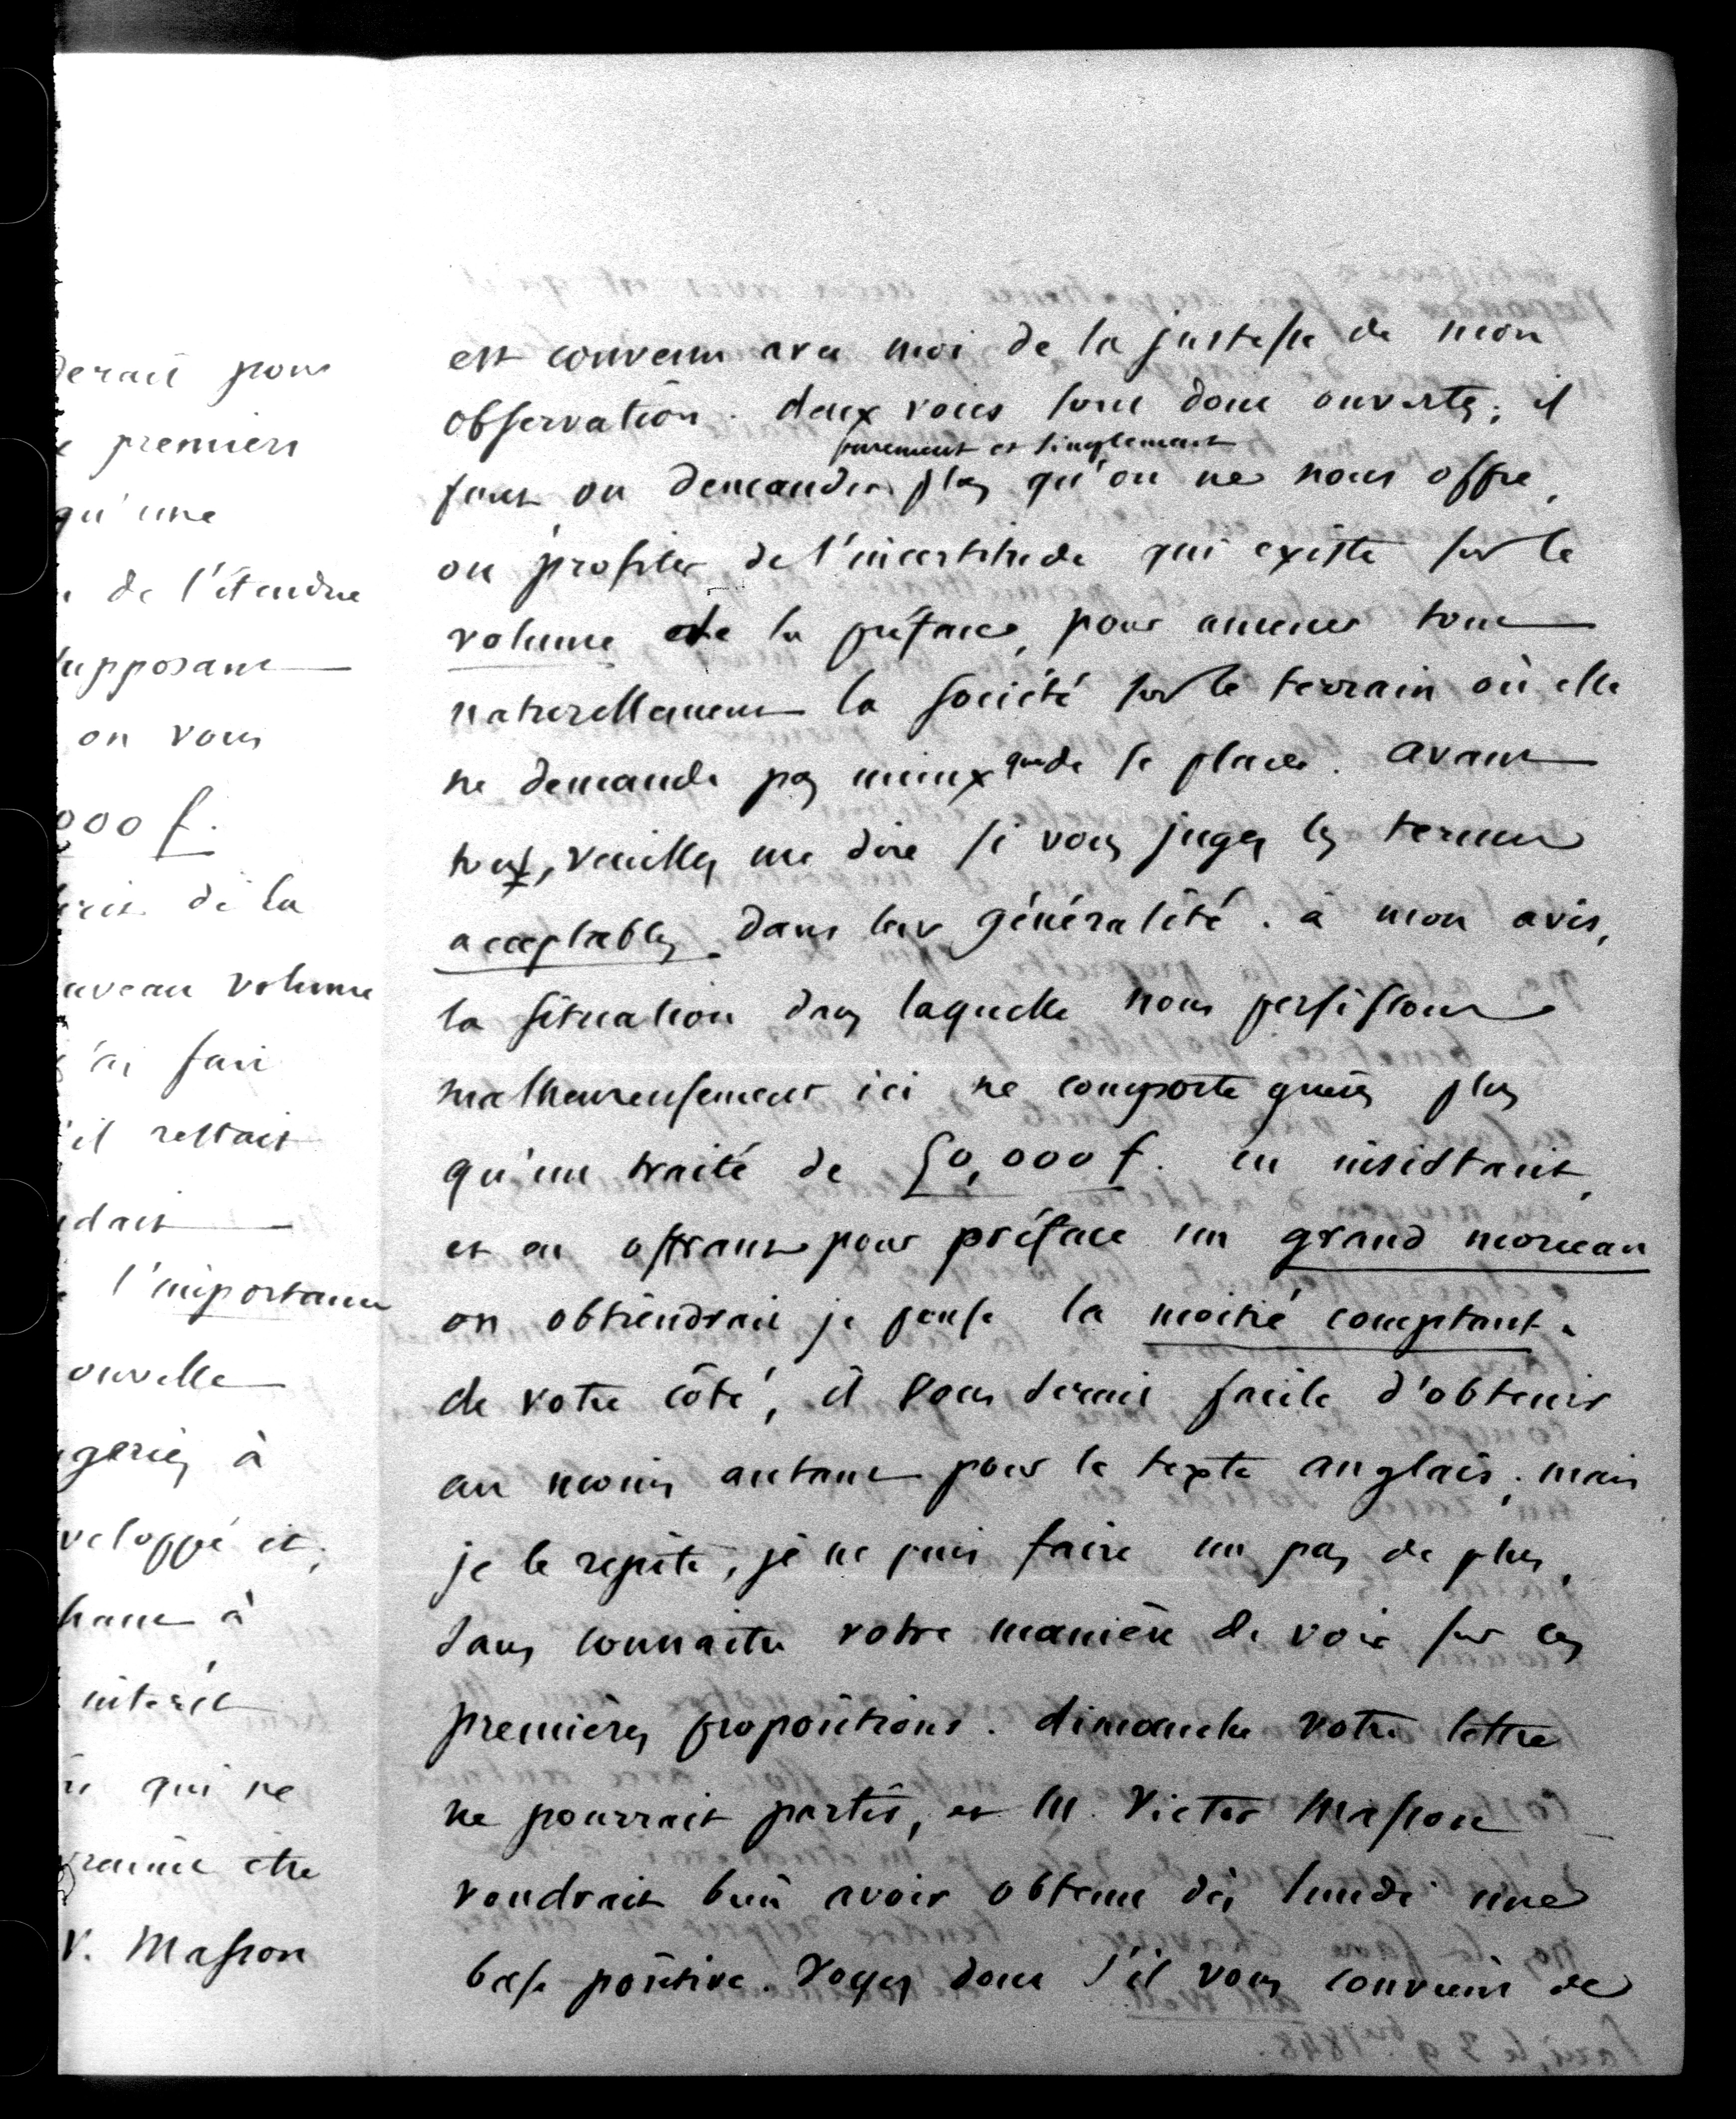 derait pour
premiers
qu'une
de l'étendue
supposant
on vous
000 f.
de la
nouveau volume
j'ai fait
s'il restait
dait
l'importance
nouvelle
geriez à
développé et,
à
intérêt
qui ne
être
V. Masson
est convenu avec moi de la justesse de mon
observation. deux voies sont donc ouvertes; il
purement et simplement
faut ou demander plus qu'on ne nous offre,
ou profiter de l'incertitude qui existe sur le
volume de la préface, pour amener tout
naturellement la société sur le terrain où elle
ne demande pas mieux que de se placer. avant
tout, veuillez me dire si vous jugez les termes
acceptables dans leur généralité. à mon avis,
la situation dans laquelle nous persistons
malheureusement ici ne comporte guères plus
qu'un traité de 50,000 f. en insistant,
et en offrant pour préface un grand morceau
on obtiendrait je pense la moitié comptant.
de votre côté, il vous serait facile d'obtenir
au moins autant pour le texte anglais; mais
je le repète, je ne puis faire un pas de plus,
sans connaitre votre manière de voir sur ces
premières propositions. dimanche votre lettre
ne pourrait partir, et M. Victor Masson
voudrait bien avoir obtenu dès lundi une
base positive. Voyez donc s'il vous convient de